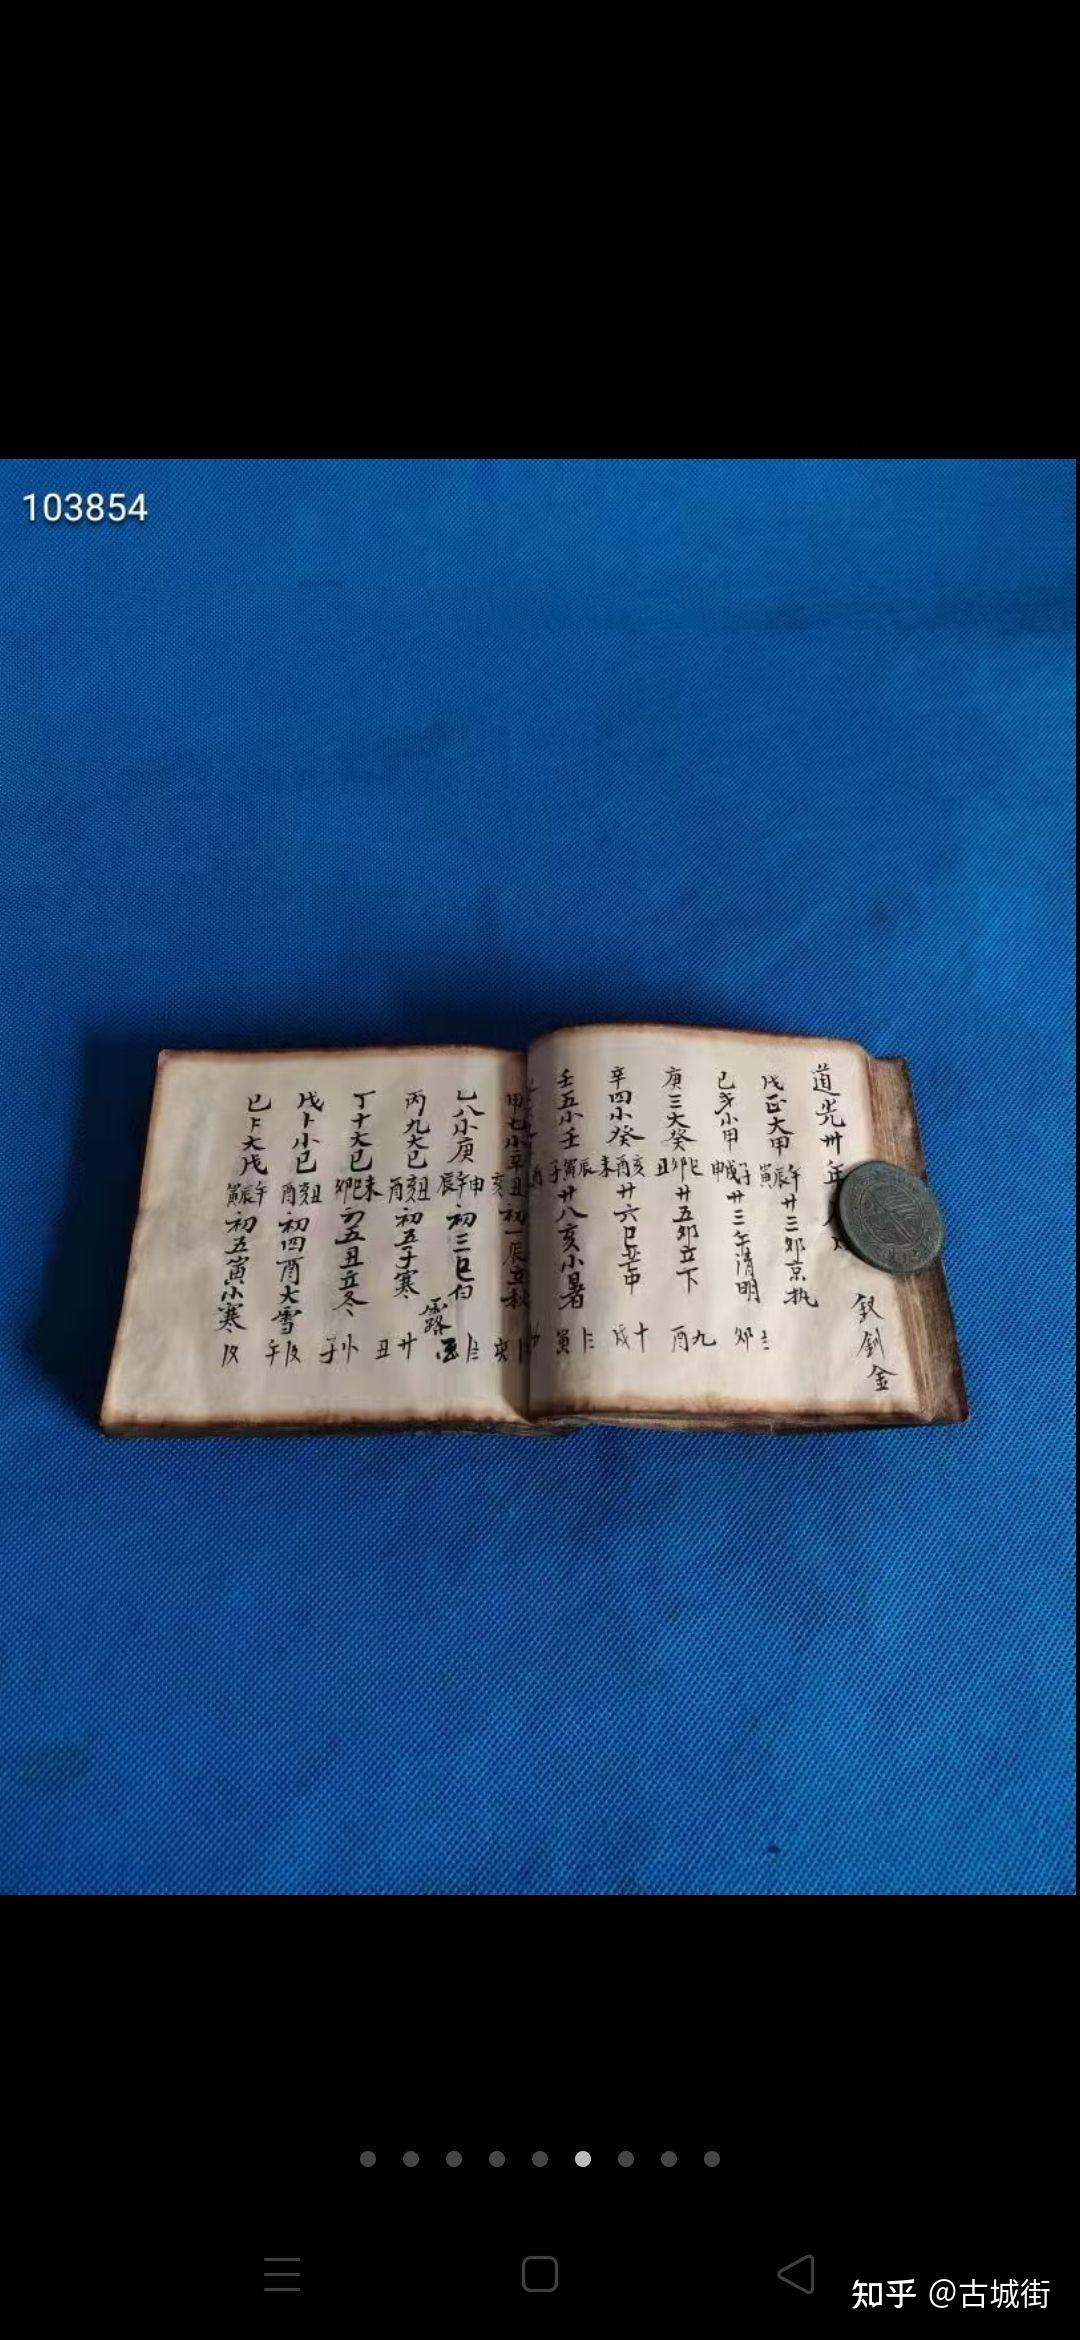 103854
道光卅年
釵釧金
戊正大甲寅辰午廿三卯京执
己岁小甲申戌子廿三午清明三卯
庚三大癸丑卯巳廿五卯立下九酉
辛四小癸未酉亥廿六巳芒中十戌
壬五小壬子寅辰廿八亥小暑寅
甲七小辛丑亥初一辰立秋亥
乙八小庚辰午申初三巳白露
丙九大己酉亥丑初五子寒廿丑
丁十大己卯巳未初五丑立冬子
戊卜小己酉亥丑初四酉大雪午
己大戊寅辰午初五寅小寒
知乎 @古城街